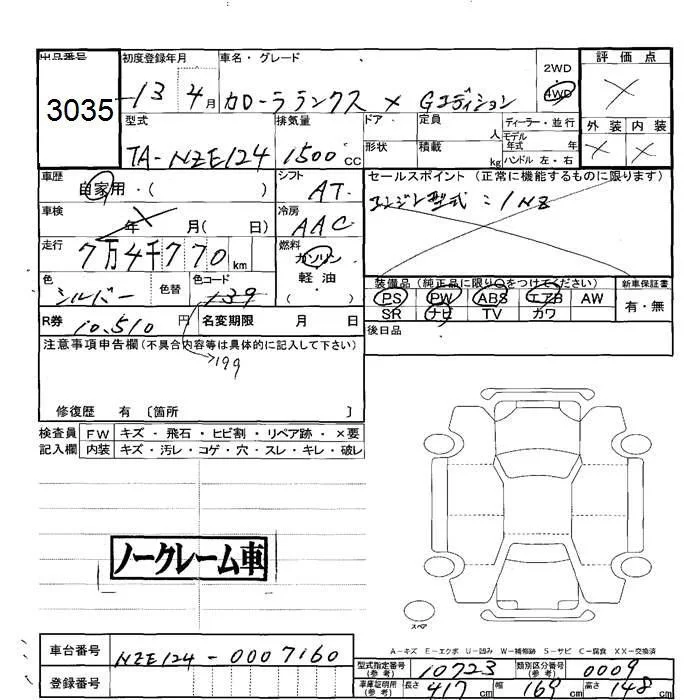 出品番号 初度登録年月 車名・グレード 2WD 4WD 評価点
3035 13 4月 カローラランクス X Gエディション ×
型式 排気量 ドア 定員 人 ディーラー・並行 外装 内装
TA-NZE124 1500cc 形状 積載 kg モデル年式 年 ハンドル 左・右 × ×
車歴 自家用・( ) シフト AT セールスポイント(正常に機能するものに限ります)
車検 年 月( 日) 冷房 AAC エンジン型式:1NZ
走行 7万4千770km 燃料 ガソリン 軽油・( )
色 シルバー 色替 色コード 139 装備品(純正品に限り○をつけてください) 新車保証書
PS PW ABS エアB AW 有・無
SR ナビ TV カワ
R券 10,510円 名変期限 月 日 後日品
注意事項申告欄(不具合内容等は具体的に記入して下さい)
199
修復歴 有 〔箇所 〕
検査員 FW キズ・飛石・ヒビ割・リペア跡・×要
記入欄 内装 キズ・汚レ・コゲ・穴・スレ・キレ・破レ
ノークレーム車
スペア
A-キズ E-エクボ U-凹み W-補修跡 S-サビ C-腐食 XX-交換済
車台番号 NZE124-0007160
型式指定番号(参考) 10723 類別区分番号(参考) 0009
登録番号
車庫証明用(参考) 長さ 417cm 幅 169cm 高さ 148cm